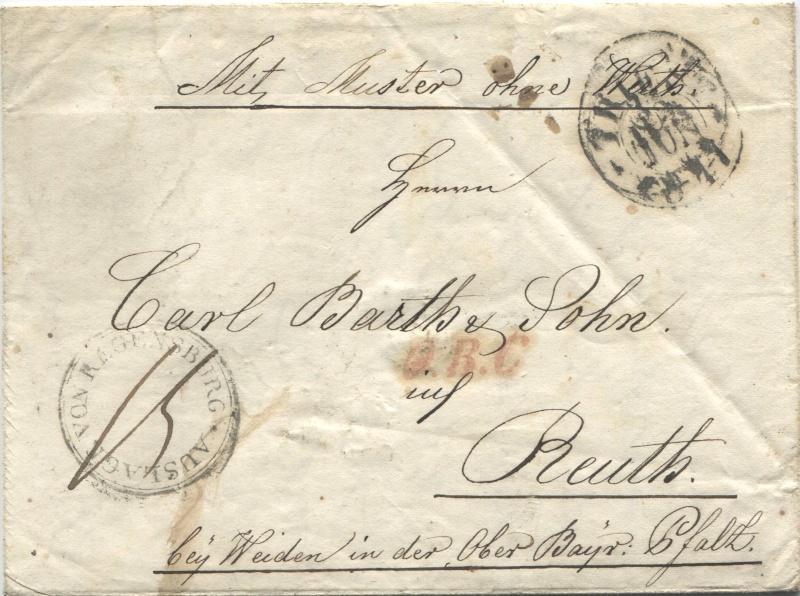 Mit, Muster ohne Werth.
Herrn
Carl Barth & Sohn.
O.R.C
in
Reuth.
bey Weiden in der, Ober Bayr: Pfalz.
AUSLAGE VON REGENSBURG
15
JUN